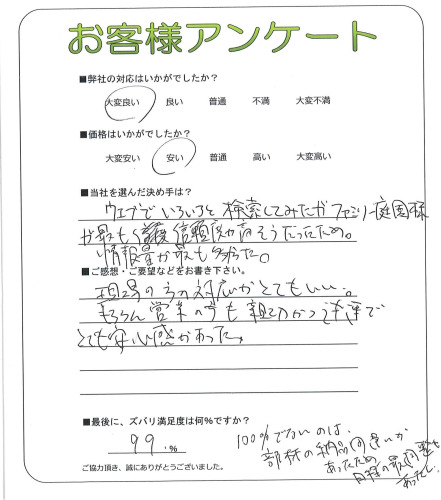 お客様アンケート
■弊社の対応はいかがでしたか?
大変良い 良い 普通 不満 大変不満
■価格はいかがでしたか?
大変安い 安い 普通 高い 大変高い
■当社を選んだ決め手は?
ウェブでいろいろと検索してみたがファミリー庭園様
が最も信頼度が高そうだったため。
情報量が最も多かった。
■ご感想・ご要望などをお書き下さい。
現場の方の対応がとてもいい。
もちろん営業の方も親切かつ迅速で
とても安心感があった。
■最後に、ズバリ満足度は何%ですか?
99.%
100%でないのは、
部材の納品間違いが
あったため
日程の
あったし
ご協力頂き、誠にありがとうございました。